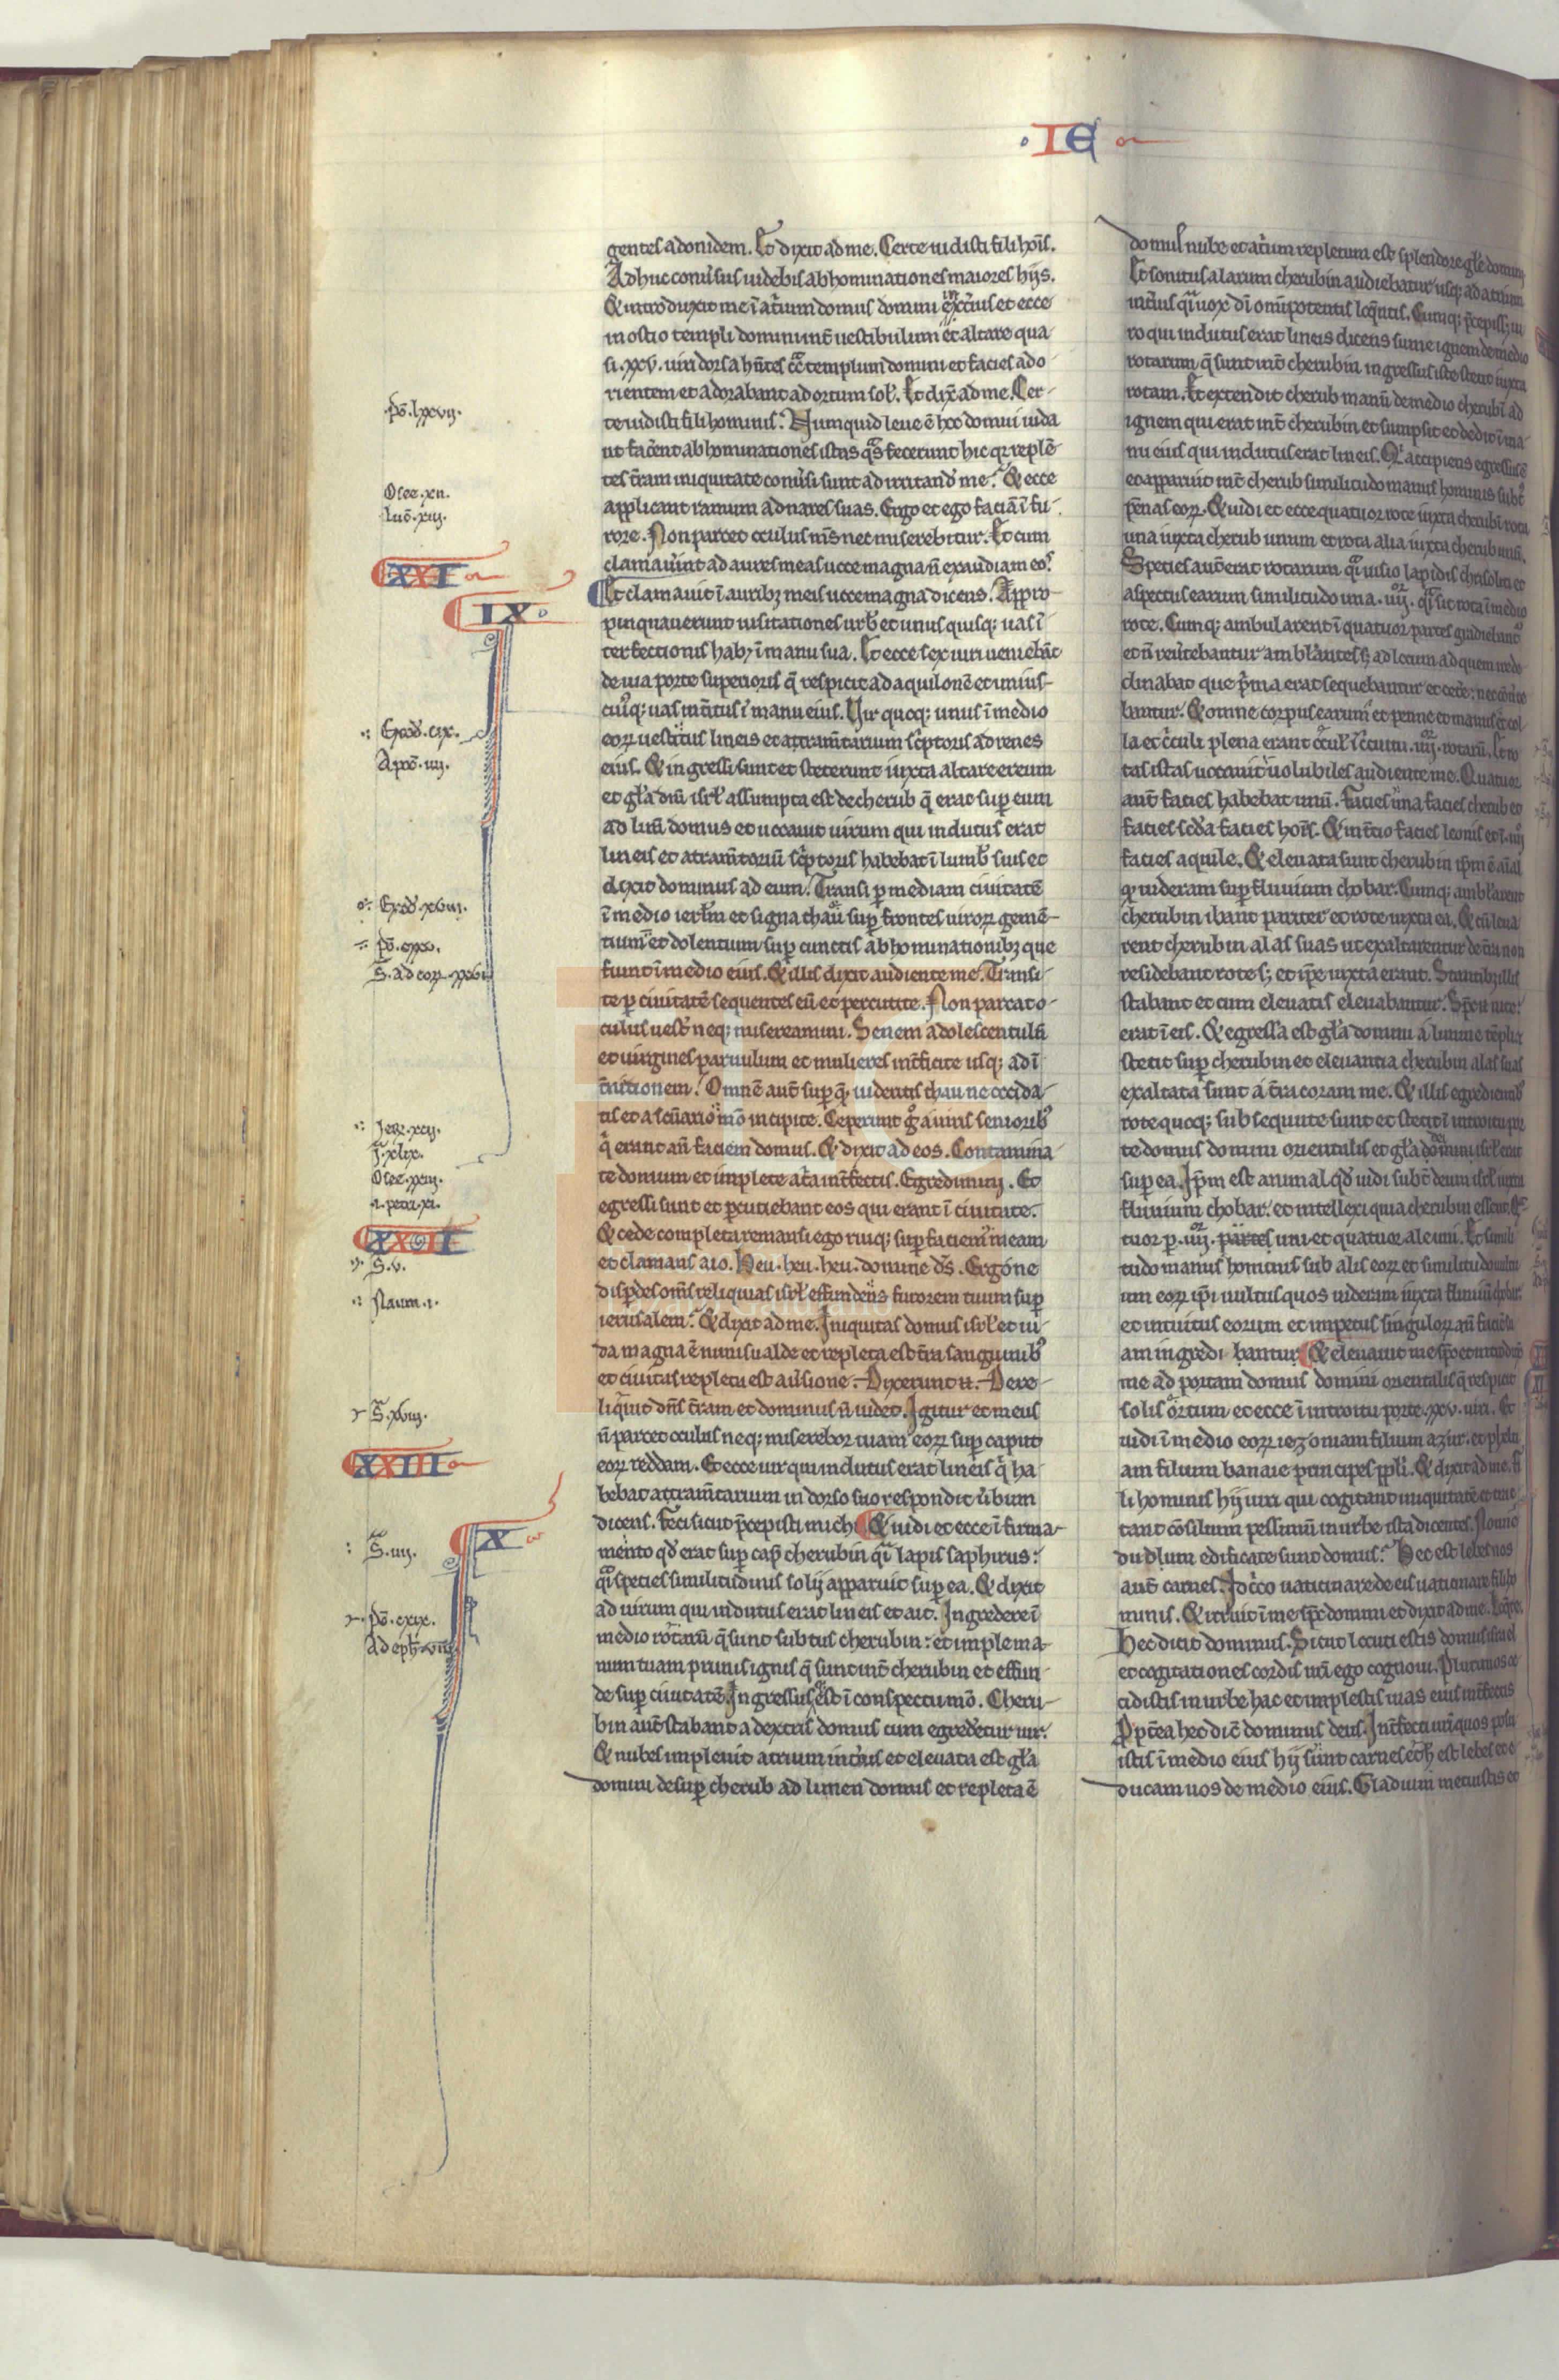 IE
gentes adonidem. Et dixit ad me. Certe uidisti fili hoīs.
Adhuc conu̓sus uidebis abhominationes maiores hijs.
& introduxit me ī at̓ium domus domini int̓ius et ecce
in ostio templi domini int̄ uestibulum et altare qua
si .xxv. uiri dorsa hn̄tes cͣ templum domini et facies ad o
rientem et adorabant ad ortum sol̓. Et dix̄ ad me. Cer
te uidisti fili hominis. Numquid leue ē hoc domui iuda
ut fac̓ent abhominationes istas qͣs fecerunt hic qr replē
tes t̄ram iniquitate conu̓si sunt ad irritand̓ me. & ecce
applicant ramum ad nares suas. Ergo et ego faciā ī fu
rore. Non parcet oculus m̄s nec miserebitur. Et cum
clamau̓int ad aures meas uoce magna n̄ exaudiam eos
Et clamauit ī auribꝫ meis uoce magna dicens. Appro
pinquauerunt uisitationes urb̓ et unus quisqꝫ uas ī
terfectionis habꝫ ī manu sua. Et ecce sex uiri ueniebāt
de uia porte superioris q̄ respicit ad aquilonē et unius
cuiꝰqꝫ uas int̓itus ī manu eius. Uir quoqꝫ unus ī medio
eoꝝ uestitus lineis et attram̄tarium sc̓ptoris ad renes
eius. & ingressi sunt et steterunt iuxta altare ereum
et gl̓a dn̄i isrl̓ assumpta est de cherub q̄ erat suꝑ eum
ad lim̄ domus et uocauit uirum qui indutus erat
lineis et atram̄toriū sc̓ptoris habebat ī lumb̓ suis et
dixit dominus ad eum. Transi ꝑ mediam ciuitatē
ī medio ierl̓m et signa thau suꝑ frontes uiroꝝ gemē
tium et dolentium suꝑ cunctis abhominationibꝫ que
fiunt ī medio eius. & illis dixit audiente me. Transi
te ꝑ ciuitatē sequentes eū et percutite. Non parcat o
culus uest̓ neqꝫ misereamini. Senem adolescentulū
et uirgines paruulum et mulieres int̄ficite usqꝫ ad ī
t̄nitionem. Omnē aut̄ suꝑ qͦꝫ uideritis thau ne occida
tis et a sc̄uario mō incipite. Ceperunt gͦ a uiris seniorib̓
q̓ erant an̄ faciem domus. & dixit ad eos. Contamina
te domum et implete at̓ia int̄fectis. Egredimini. Et
egressi sunt et ꝑcutiebant eos qui erant ī ciuitate.
& cede completa remansi ego ruiqꝫ suꝑ faciem meam
et clamans aio. Heu. heu. heu. domine ds̄. Ergone
disꝑdes om̄s reliquias isrl̓ effundens furorem tuum suꝑ
ierusalem. & dixit ad me. Iniquitas domus isrl̓ et iu
da magna ē nimis ualde et repleta est t̄ra sanguinib̓
et ciuitas repleta est au̓sione. Dixerunt .n. Dere
liq̓uit dn̄s t̄ram et dominus n̄ uidet. Igitur et meus
n̄ parcet oculus neqꝫ miserebor uiam eoꝝ super caput
eoꝝ reddam. Et ecce uir qui indutus erat lineis q̓ ha
bebat attram̄tarium in dorso suo respondit u̓bum
dicens. Feci sicut p̄cepisti michi & uidi et ecce ī firma
mento qd̓ erat suꝑ cap̄ cherubin qͣi lapis saphirus:
qͣi species similitudinis solij apparuit suꝑ ea. & dixit
ad uirum qui indutus erat lineis et ait. Ingredere ī
medio rotarū q̄ sunt subtus cherubin: et imple ma
num tuam prunis ignis q̄ sunt int̄ cherubin et effun
de suꝑ ciuitatē. Ingressus est ī conspectu mō. Cheru
bin aut̄ stabant a dextris domus cum egrederetur uir.
& nubes impleuit atrium int̓ius et eleuata est gl̓a
domini desuꝑ cherub ad limen domus et repleta ē
domus nube et at̓ium repletum est splendore gl̓e domini
Et sonitus alarum cherubin audiebatur usqꝫ ad atrium
int̓ius qͣi uox di om̄ipotentis loq̄ntis. Cumqꝫ p̄cepissꝫ ui
ro qui indutus erat lineis dicens sume ignem de medio
rotarum q̄ sunt int̄ cherubin ingressus iste stetit iuxta
rotam. Et extendit cherub manū de medio cherubī ad
ignem qui erat int̄ cherubin et sumpsit et dedit ī ma
nu eius qui indutus erat lineis. Qi accipiens egressus ē
et apparuit int̄ cherub similitudo manus hominis subt̓
pēnas eoꝝ. & uidi et ecce quatuor rote iuxta cherubī rota
una iuxta cherub unum et rota alia iuxta cherub unū.
Species aut̄ erat rotarum qͣi uisio lapidis chrisoliti et
aspectus earum similitudo una .iiijoꝝ. qͣi sit rota ī medio
rote. Cumqꝫ ambularent ī quatuor partes gradiebant̓
et n̄ reu̓tebantur amblantes sꝫ ad locum ad quem ire de
clinabat que p̓ma erat sequebantur et cete: nec cōu̓te
bantur. & omne corpus earum et penne et manus et col
la et c̓culi plena erant ocul̓ ī c̓cuitu .iiijoꝝ. rotarū. Et ro
tas istas uocauit uolubiles audiente me. Quatuor
aut̄ facies habebat unū. Facies una facies cherub et
facies scd̓a facies hoīs. & in tc̓io facies leonis et ī .iiij
facies aquile. & eleuata sunt cherubin ip̄m ē aīal
qͦ uideram suꝑ fluuium chobar. Cumqꝫ amblarent
cherubin ibant pariter et rote iuxta ea. & cū leua
rent cherubin alas suas ut exaltarentur de t̄ra non
residebant rote sꝫ et ip̄e iuxta erant. Stantibꝫ illis
stabant et cum eleuatis eleuabantur. Sp̄c .n. uite.
erat ī eis. & egressa est gl̓a domini a limine tēpli
stetit suꝑ cherubin et eleuantia cherubin alas suas
exaltata sunt a t̄ra coram me. & illis egredientib̓
rote quoqꝫ subsequute sunt et stetit ī introitu por
te domus domini orientalis et gl̓a domini isrl̓ erat
suꝑ ea. Ip̄m est animal qd̓ uidi subt̄ deum isrl̓ iuxta
fluuium chobar. et intellexi quia cherubin essent. q̄
tuor p. iiijoꝝ. partes uni et quatuor ale uni. Et simili
tudo manus hominis sub alis eoꝝ et similitudo uultu
um eoꝝ ip̄i uultus quos uideram iuxta fluuiū chobar.
et intuitus eorum et impetus singuloꝝ an̄ faciē su
am ingredi bantur & eleuauit me sp̄c et introduxit
me ad portam domus domini orientalis q̄ respicit
solis ortum et ecce ī introitu porte .xxv. uiri. Et
uidi ī medio eoꝝ iezoniam filium azur. et phelti
am filium banaie principes ppl̓i. & dixit ad me. fi
li hominis hij uiri qui cogitant iniquitatē et trac
tant cōsilium pessimū in urbe ista dicentes. Nonne
dudum edificate sunt domus. Hec est lebes nos
aut̄ carnes. Idc̓co uaticinare de eis uaticinare fili ho
minis. & irruit ī me sp̄c domini et dixit ad me. Loq̄re.
Hec dicit dominus. Sicut locuti estis domus israel
et cogitationes cordis ur̄i ego cognoui. Plurimos oc
cidistis in urbe hac et implestis uias eius int̄fectis
Propt̄ea hec dic̄ dominus deus. Int̄fecti ur̄i quos posu
istis ī medio eius hij sunt carnes et h̄ est lebes et e
ducam uos de medio eius. Gladium metuistis et
ps̄. lxxvij.
Osee. xii.
luc̄. xiij.
XXI
IX
Exod̓. cix.
Apoc̄. iiij.
Exod̓. xviij.
ps̄. cxxv.
S. ad cor. xxvi
Jer. xcij.
J. xlix.
Osee. xxiij.
i. petri. xi.
XXII
S. v.
Naum. i.
S. xviij.
XXIII
S. iiij.
X
ps̄. cxix.
Ad eph̄. xviij